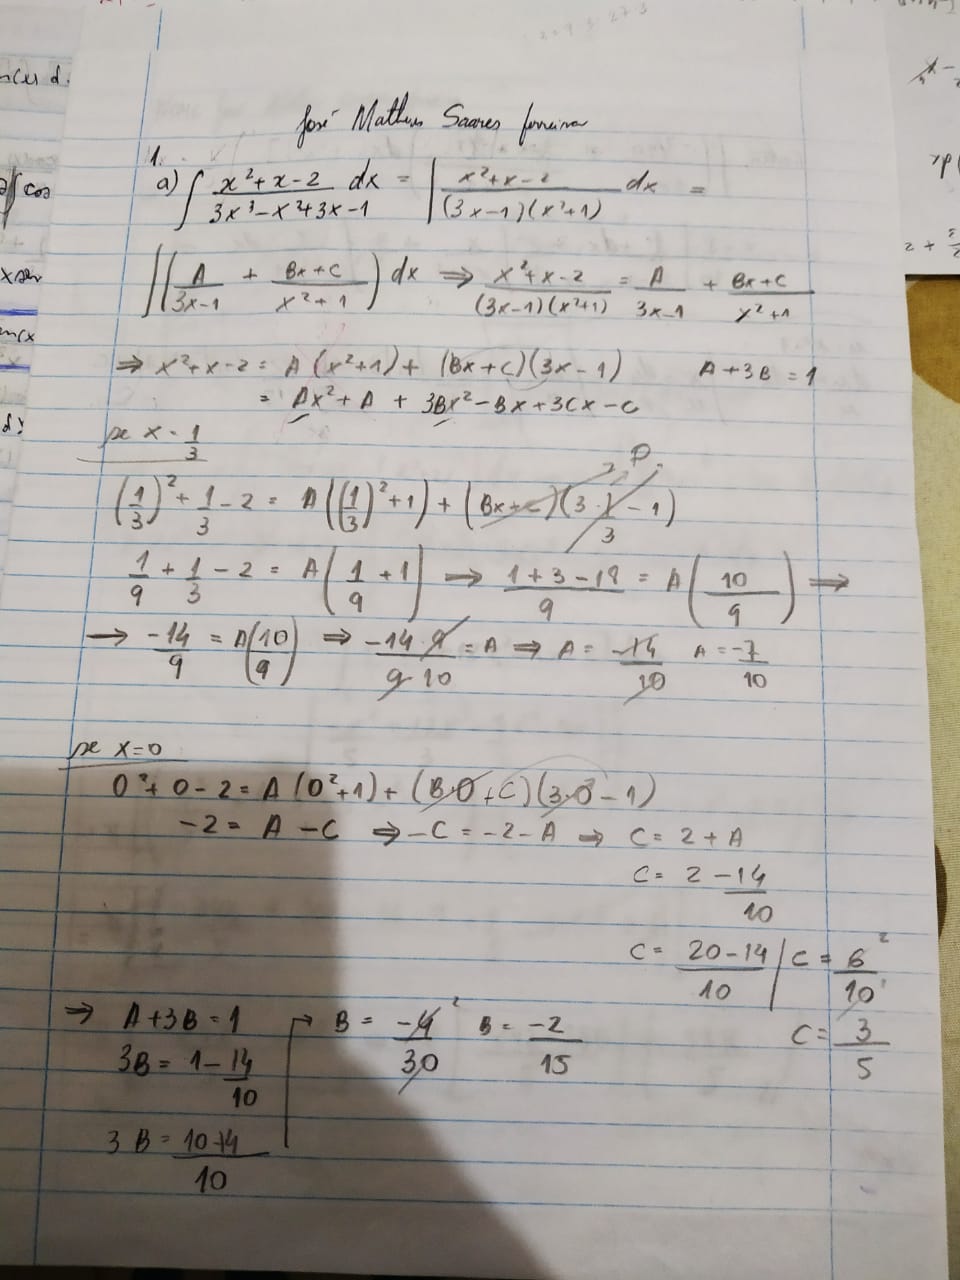 José Matheus Soares Ferreira
1.
a) ∫ (x²+x-2)/(3x³-x²+3x-1) dx = ∫ (x²+x-2)/((3x-1)(x²+1)) dx =
∫ (A/(3x-1) + (Bx+C)/(x²+1)) dx ⇒ (x²+x-2)/((3x-1)(x²+1)) = A/(3x-1) + (Bx+C)/(x²+1)
⇒ x²+x-2 = A(x²+1) + (Bx+C)(3x-1) A+3B=1
= Ax²+A + 3Bx²-Bx+3Cx-C
se x = 1/3
(1/3)² + 1/3 - 2 = A((1/3)²+1) + (Bx+C)(3·1/3 - 1)
1/9 + 1/3 - 2 = A(1/9 + 1) ⇒ (1+3-18)/9 = A(10/9) ⇒
→ -14/9 = A(10/9) ⇒ (-14·9)/(9·10) = A ⇒ A = -14/10 A = -7/10
se x=0
0²+0-2 = A(0²+1) + (B·0+C)(3·0-1)
-2 = A-C ⇒ -C = -2-A ⇒ C = 2+A
C = 2 - 14/10
C = (20-14)/10 | C = 6/10
⇒ A+3B=1 → B = -4/30 B = -2/15 C = 3/5
3B = 1 - 14/10
3B = (10-14)/10